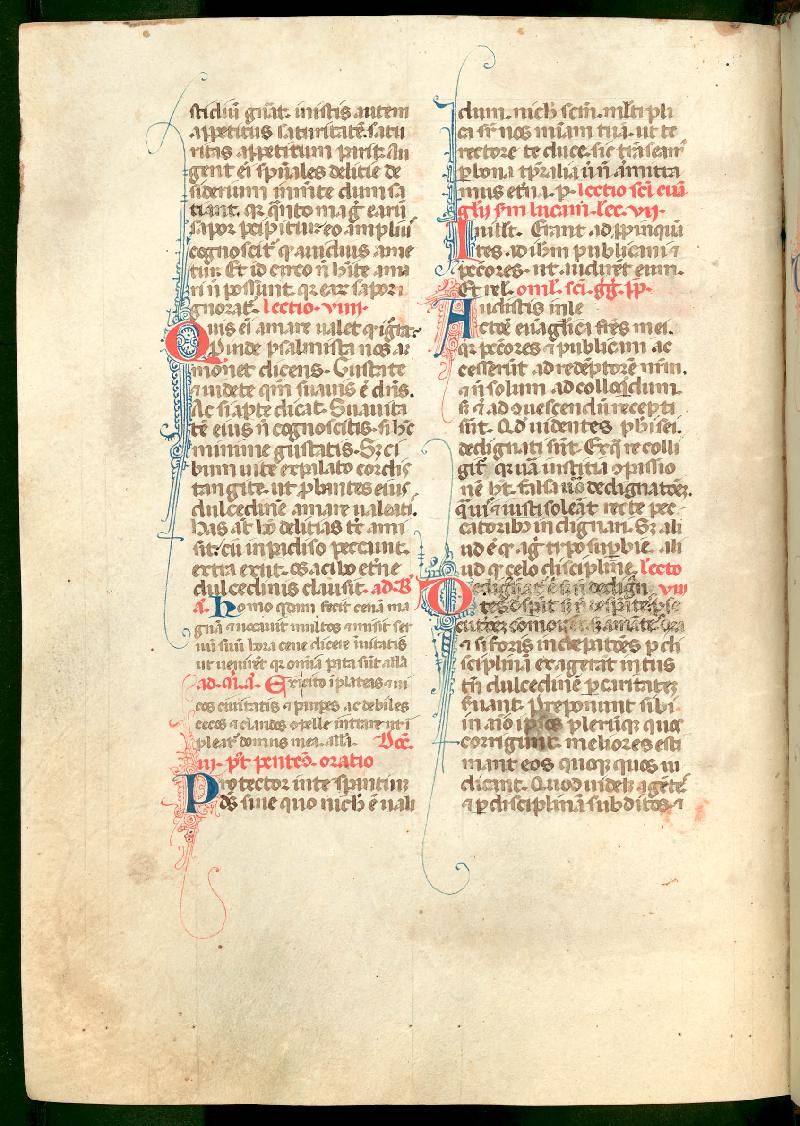 stidiū gn̄at. in istis autem
appetitus saturitatē. satu
ritas appetitum parit. Au
gent ei sp̄uales delitie de
siderium in mente dum sa
tiant. qr q̄nto mag̃ earū
sapor p̱cipitur. eo ampliu᷒
cognoscit᷑ q̇ auidius ame
tur. Et id circo ñ h̄ite ama
ri ñ possunt. qr ear sapor i
gnorat᷑. Lectio. viiii.
Quis ei amare ualet q̇ igrat.
Proinde psalmista nos ad
monet dicens. Gustate
⁊ uidete qm̄ suauis ē dn̄s.
Ac si ap̱te dicat. Suauita
tē eius ñ cognoscitis. si hc̄
minime gustatis. Sꝫ ci
bum uite ex palato cordis
tangite. ut ꝓbantes eius
dulcedinē amare ualeatis.
has at᷑ hō delitias tc̄ ami
sit. cū in padiso peccauit.
extra exiit. os a cibo etne
dulcedinis clausit. ad. B
a. Homo qdam fecit cenā ma
gnā ⁊ uocauit multos ⁊ misit ser
uū suū hora cene dicere inuitatis
ut uenirēt qr omīa pata sūt allā
ad. m̄. a. Exi cito in plateas ⁊ ui
cos ciuitatis ⁊ paup̱es ac debiles
cecos ⁊ claudos cōpelle intrare ut i
pleat᷑ domus mea. allā. Dōc.
iii. pt̄ penteō. oratio
Protector in te sperantium
ds̄ sine quo nich̄ ē uali
dum. nich̄ scm̄. mltipli
ca sr̄ nos miam tuā. ut te
rectore te duce. sic trāseam᷒
ꝑ bona tp̄ralia ut ñ amitta
mus etna. p. Lectio sc̄i euā
glii sm̄ lucam. Lec. vii.
In illt. Erant ad ꝓpinquā
tes. ad ih̄m publicani ⁊
peccōres. ut audirēt eum.
Et rel. oml. sc̄i. gg. pp.
Audistis in le
ctōe euāglica frēs mei.
qr peccōres ⁊ publicani ac
cesserūt ad redēptorē nr̄m.
⁊ ñ solum ad colloq̄dum.
sꝫ ⁊ ad uescendū recepti
sūt. Qd̄ uidentes pharisei.
dedignati sūt. Ex q̄ re colli
git᷑ qr uā iustitia cōpassio
nē ht. falsa uō dedignatōeꝫ.
q̄uis ⁊ iusti soleāt recte pec
catoribꝫ indignari. Sꝫ ali
ud ē q̇ agit᷑ typo sup̱bie. ali
ud q̇ celo discipline. Lecto
viii
Dedignāt᷑ ei sꝫ ñ dedignā
tes. desp̱āt sꝫ ñ desp̱antes. p̱se
cutōeꝫ comouēt sꝫ amātes.
⁊ si foris increpatōes p̱ di
sciplinā exagerāt intus
tn̄ dulcedinē p̱ caritateꝫ
seruant. Preponunt sibi
in aīo ipsos plerūqꝫ quos
corrigunt. meliores esti
mant eos quoqꝫ quos iu
dicant. Quod uideliꝫ agētes
⁊ p̱ disciplinā subditos ⁊